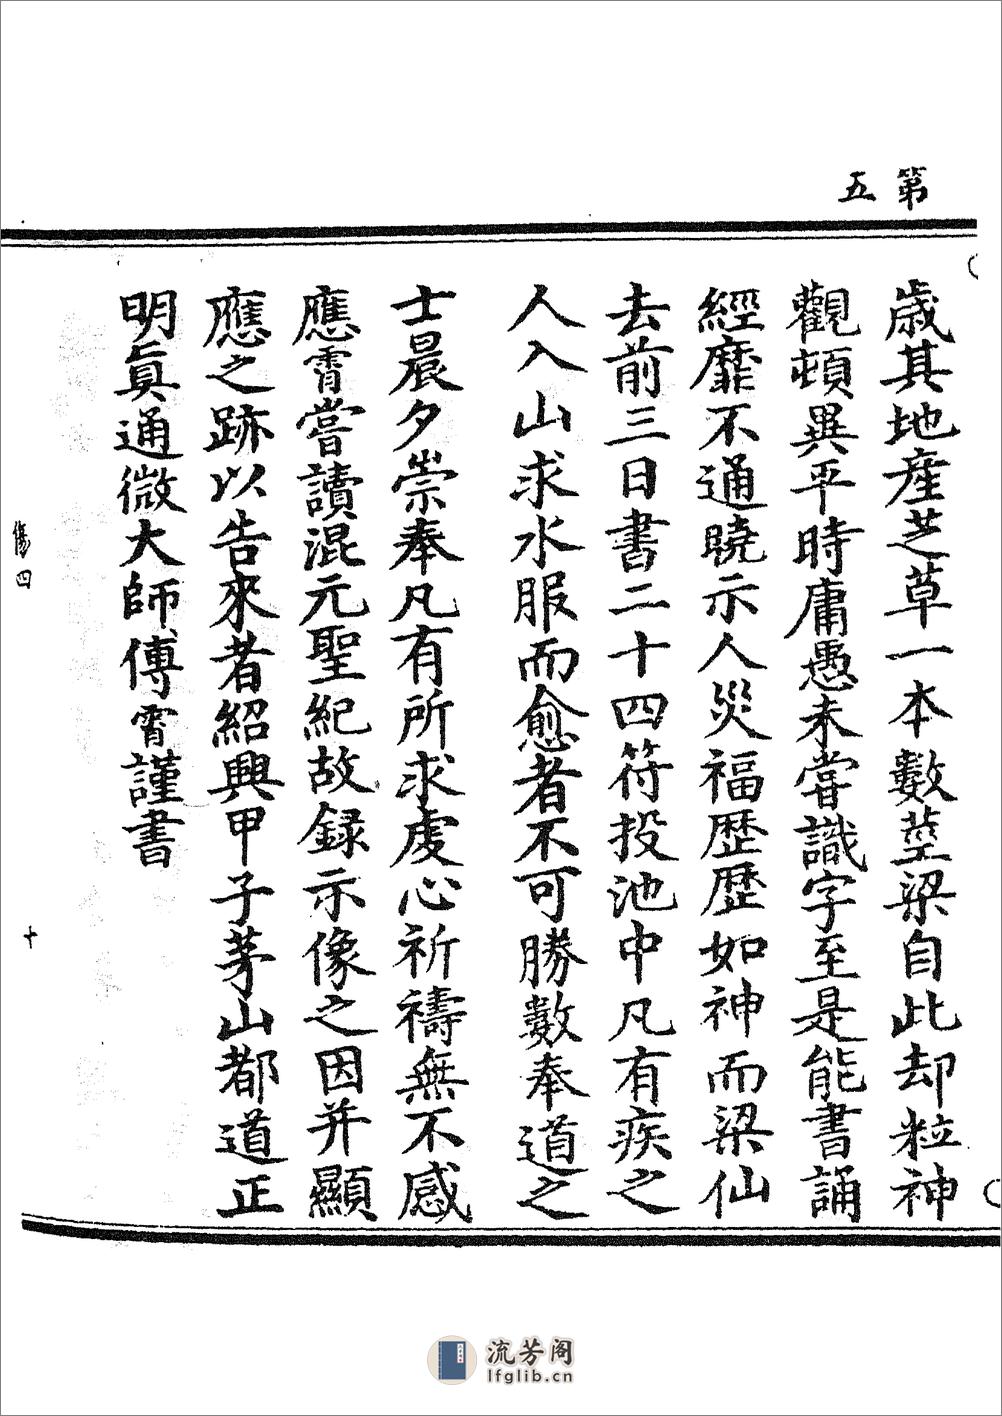 第五
歲其地產芝草一本數莖梁自此却粒神
觀頓異平時庸愚未嘗識字至是能書誦
經靡不通曉示人災福歷歷如神而梁仙
去前三日書二十四符投池中凡有疾之
人入山求水服而愈者不可勝數奉道之
士晨夕崇奉凡有所求虔心祈禱無不感
應霄嘗讀混元聖紀故録示像之因并顯
應之跡以告來者紹興甲子茅山都道正
明眞通微大師傅霄謹書
傷四
十
流芳阁
lfglib.cn